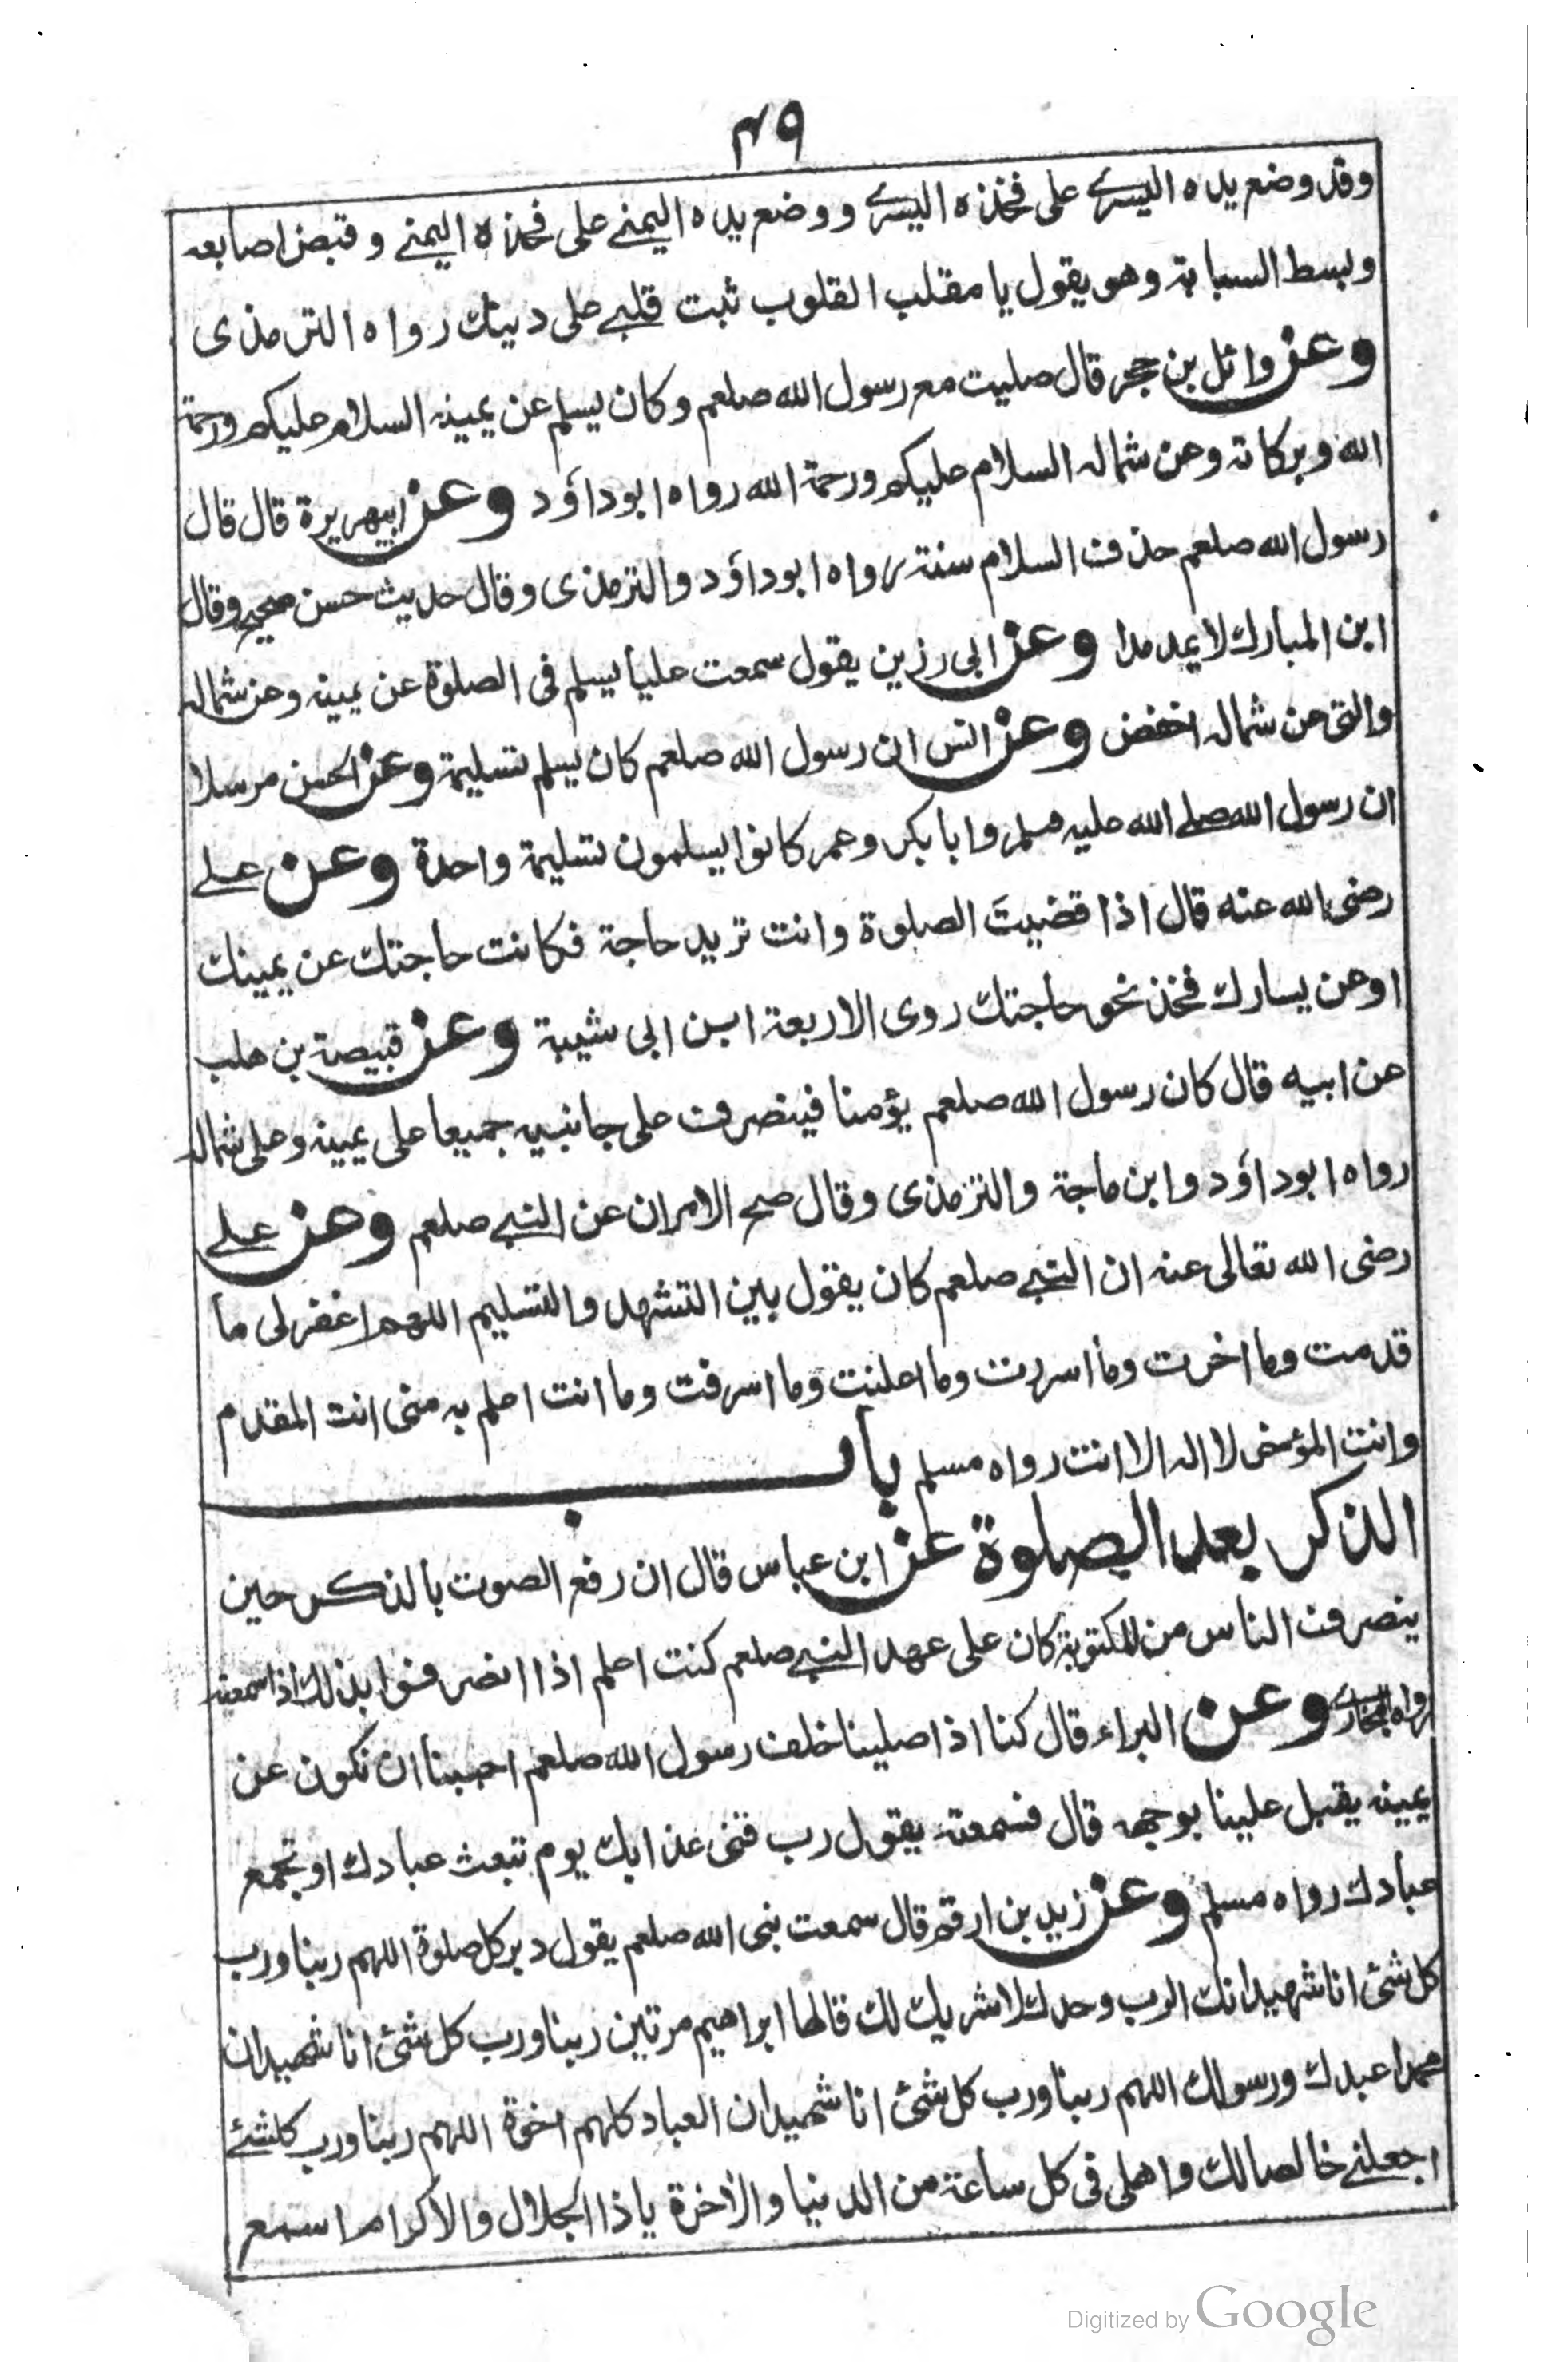 ۴۹
وقد وضع يده اليسرے على فخذه اليسرے ووضع يده اليمنے على فخذه اليمنے وقبض اصابعه
وبسط السبابة وهو يقول يا مقلب القلوب ثبت قلبے على دينك رواه الترمذى
وعن وائل بن حجر قال صليت مع رسول الله صلعم وكان يسلم عن يمينه السلام عليكم ورحمة
الله وبركاته وعن شماله السلام عليكم ورحمة الله رواه ابوداؤد وعن ابيهريرة قال قال
رسول الله صلعم حذف السلام سنة رواه ابوداؤد والترمذى وقال حديث حسن صحيح وقال
ابن المبارك لا يمد مدا وعن ابى رزين يقول سمعت عليا يسلم فى الصلوة عن يمينه وعن شماله
والتى عن شماله اخفض وعن انس ان رسول الله صلعم كان يسلم تسليمة وعن الحسن مرسلا
ان رسول الله صلے الله عليه وسلم وابا بكر وعمر كانوا يسلمون تسليمة واحدة وعن علے
رضى الله عنه قال اذا قضيت الصلوة وانت تريد حاجة فكانت حاجتك عن يمينك
اوعن يسارك فخذ نحو حاجتك روى الاربعة ابن ابى شيبة وعن قبيصة بن هلب
عن ابيه قال كان رسول الله صلعم يؤمنا فينصرف على جانبيه جميعا على يمينه وعلى شماله
رواه ابوداؤد وابن ماجة والترمذى وقال صح الامران عن النبے صلعم وعن علے
رضى الله تعالى عنه ان النبے صلعم كان يقول بين التشهد والتسليم اللهم اغفرلى ما
قدمت وما اخرت وما اسررت وما اعلنت وما اسرفت وما انت اعلم به منى انت المقدم
وانت المؤخر لا اله الا انت رواه مسلم باب
الذكر بعد الصلوة عن ابن عباس قال ان رفع الصوت بالذكر حين
ينصرف الناس من المكتوبة كان على عهد النبے صلعم كنت اعلم اذا انصرفوا بذلك اذا سمعته
رواه البخارے وعن البراء قال كنا اذا صلينا خلف رسول الله صلعم احببنا ان نكون عن
يمينه يقبل علينا بوجهه قال فسمعته يقول رب قنى عذابك يوم تبعث عبادك او تجمع
عبادك رواه مسلم وعن زيد بن ارقم قال سمعت نبى الله صلعم يقول دبر كل صلوة اللهم ربنا ورب
كل شئ انا شهيد انك الرب وحدك لا شريك لك قالها ابراهيم مرتين ربنا ورب كل شئ انا شهيد ان
محمدا عبدك ورسولك اللهم ربنا ورب كل شئ انا شهيد ان العباد كلهم اخوة اللهم ربنا ورب كلشئے
اجعلنے خالصا لك واهلى فى كل ساعة من الدنيا والاخرة يا ذا الجلال والاكرام اسمع
Digitized by Google